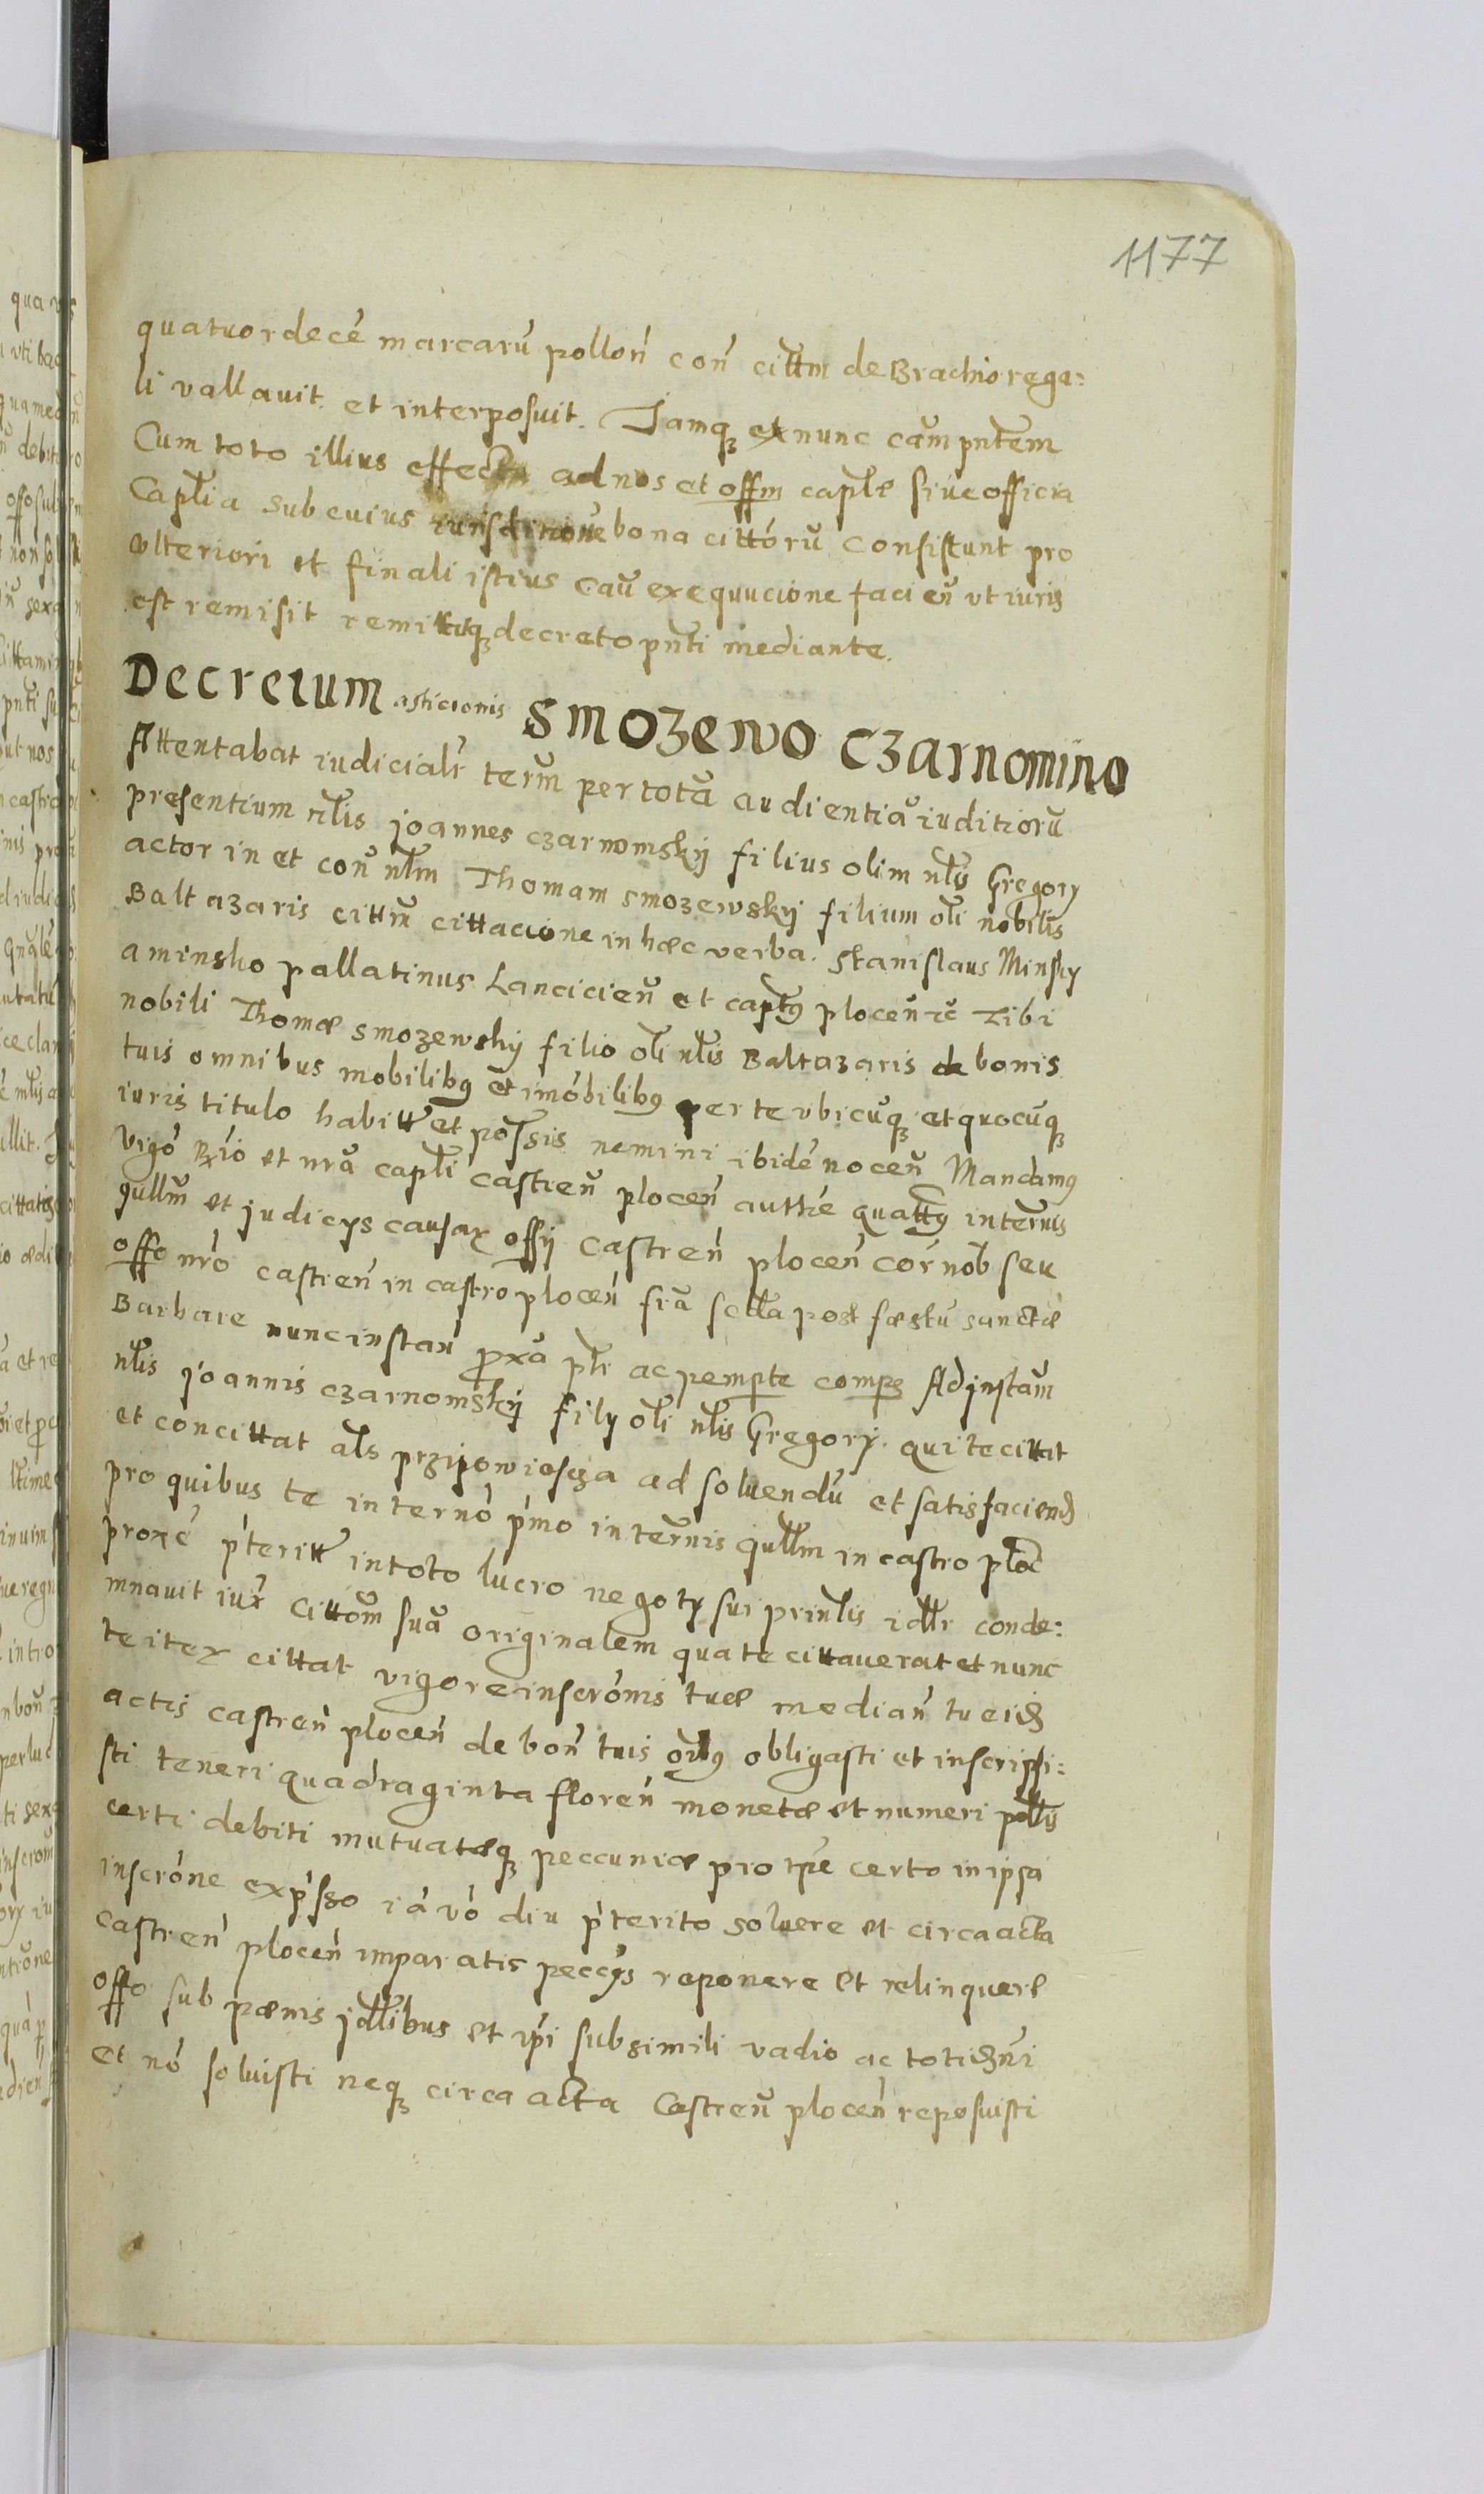 1177
quatuordecē marcarū pollon̄ con̄ cittm de Brachio rega:
li vallavit et interposuit. Jamq̨ ex nunc cam pn̄tem
Cum toto illius effectu ad nos et offm caplē sive officia
Caplia sub cuius iurisditione bona cittōrū consistunt pro
ulteriori et finali istius cau exequucione facien̄ ut iuris
est remisit remittitq̨ decreto pn̄ti mediante.
Decretum Smozewo Czarnomino
Attentabat iudicialr̄ term̄ per totā audientiā iuditiorū
presentium nlis Joannes Czarnomskÿ filius olim nlis Gregorÿ
actor in et con̄ nlm Thomam Smozewskÿ filium oli nobilis
Baltazaris cittm̄ cittacione in hæc verba. Stanislaus Minsky
a minsko pallatinus Lancicien̄ et captꝯ plocen̄ ꝛc Tibi
nobili Thomæ Smozewskÿ filio oli nlis Baltazaris de bonis
tuis omnibus mobilibꝯ et imōbilibꝯ per te ubicūq̨ et quocūq̨
iuris titulo habitt̄ et possis nemini ibidē nocen̄ Mandamꝯ
vigō Rio et nrā capli castren̄ plocen̄ autth̄e quattꝯ in termis
qullm̄ et judicÿs causaꝝ offÿ castren̄ plocen̄ cor̄ nob seu
offo nrō castren̄ in castro plocen̄ fia scda post fæstū sanctæ
Barbare nunc instan̄ p̄xā plr̄ ac pempte compꝫ Ad instām
nlis Joannis Czarnomskÿ filÿ oli nlis Gregorÿ. qui te cittat
et concittat als przÿpowiescza ad solvendū et satisfaciend
pro quibus te in ternō pr̄mo in termis qullm in castro ploc̄
proxē p̄teritt̄ in toto lucro negotÿ sui prinlis idlr conde:
mnavit iux cittōm suā originalem qua te cittaverat et nunc
te iteꝝ cittat vigore inscrōnis tuæ median̄ tu eisd
actis castren̄ plocen̄ de bon̄ tuis oībꝯ obligasti et inscripsi:
sti teneri quadraginta floren̄ monetæ et numeri pollis
certi debiti mutuatæq̨ peccuniæ pro tp̄e certo in ipsa
inscrōne exp̄sso iā vō diu p̄terito solvere et circa acta
castren̄ plocen̄ in paratis peccÿs reponere et relinquere
offo sub pænis jdlibus et rp̄i sub simili vadio ac totidn̄i
et nō solvisti neq̨ circa acta Castren̄ plocen̄ reposuisti